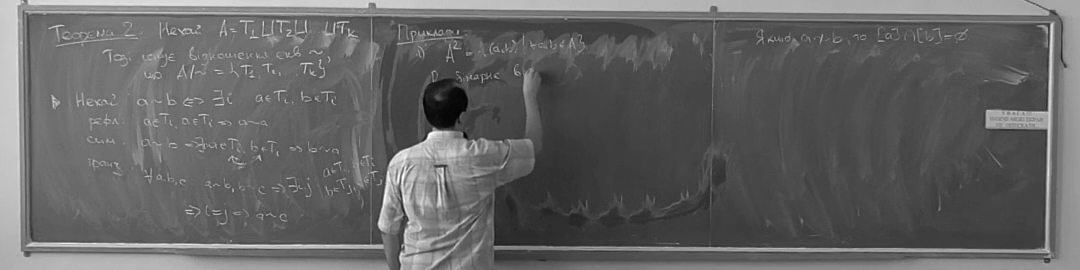 Теорема 2. Нехай A=T₁⊔T₂⊔...⊔Tₖ
Тоді існує відношення екв ~,
що A/~ = {T₂, T₁, Tₖ}
Нехай a~b ⇔ ∃i a∈Tᵢ, b∈Tᵢ
рефл: a∈Tᵢ, a∈Tᵢ ⇒ a~a
сим: a~b ⇒ ∃i a∈Tᵢ, b∈Tᵢ ⇒ b~a
транз ∀a,b,c a~b, b~c ⇒ ∃i,j
⇒ i=j ⇒ a~c
Приклади
1) A² = {(a,b) | a,b∈A}
бінарне
Якщо a≁b, то [a]∩[b]=∅
УВАГА!